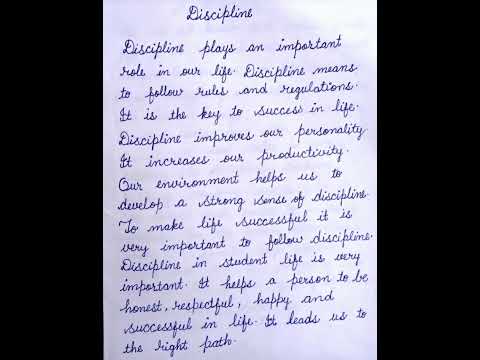 Discipline
Discipline plays an important
role in our life. Discipline means
to follow rules and regulations.
It is the key to success in life.
Discipline improves our personality.
It increases our productivity.
Our environment helps us to
develop a strong sense of discipline.
To make life successful it is
very important to follow discipline.
Discipline in student life is very
important. It helps a person to be
honest, respectful, happy and
successful in life. It leads us to
the right path.